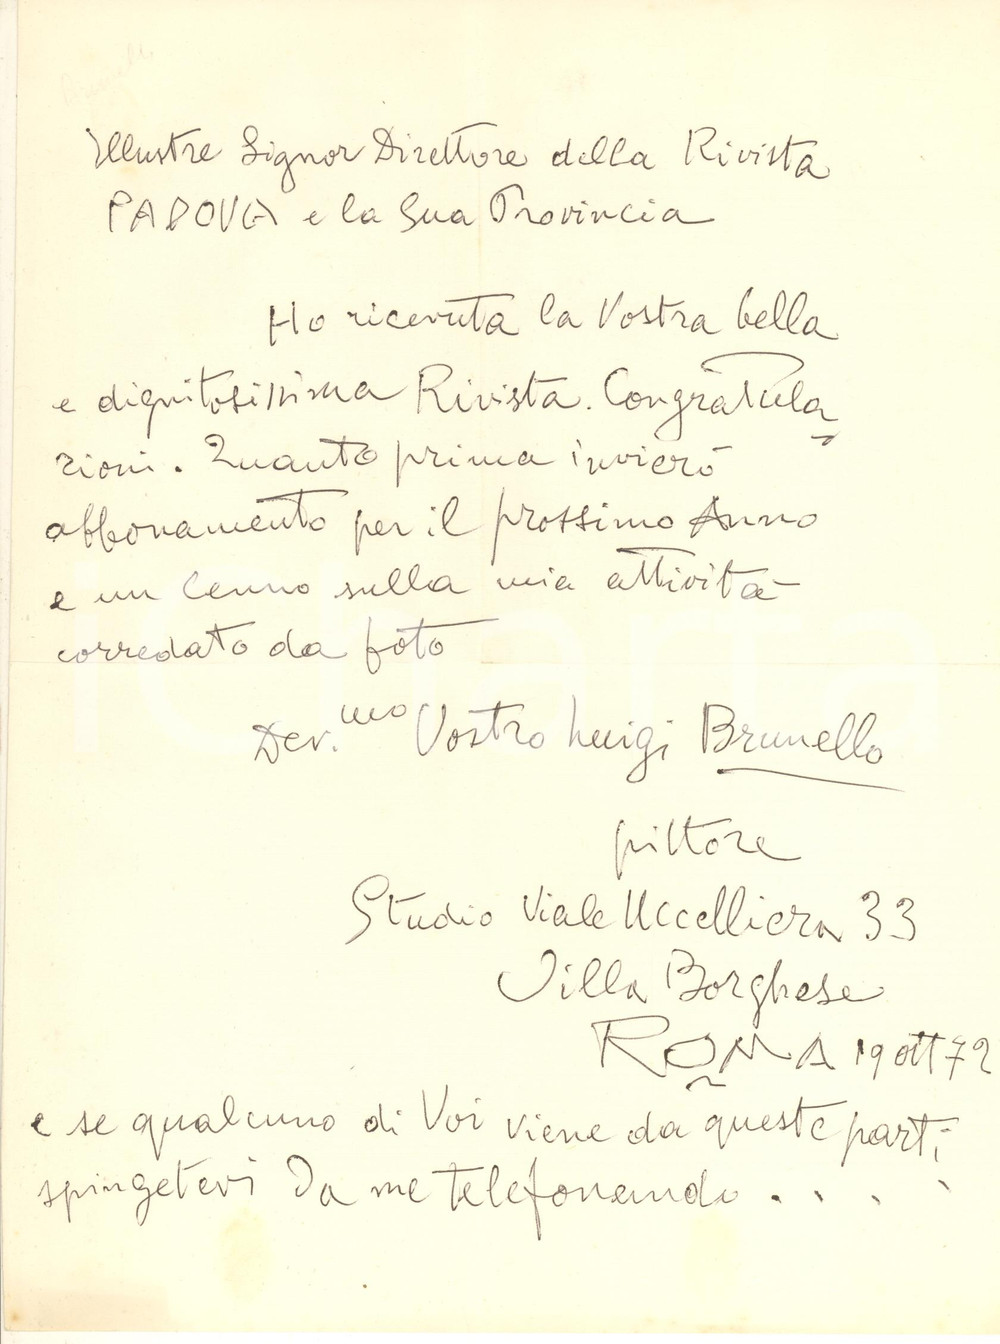 Illustre Signor Direttore della Rivista
PADOVA e la Sua Provincia
Ho ricevuta la Vostra bella
e dignitosissima Rivista. Congratula
zioni. Quanto prima invierò
abbonamento per il prossimo Anno
e un cenno sulla mia attività
corredato da foto
Dev.mo Vostro Luigi Brunello
pittore
Studio Viale Uccelliera 33
Villa Borghese
ROMA 19 ott 72
e se qualcuno di Voi viene da queste parti
spingetevi Da me telefonando . . . .
iCharta